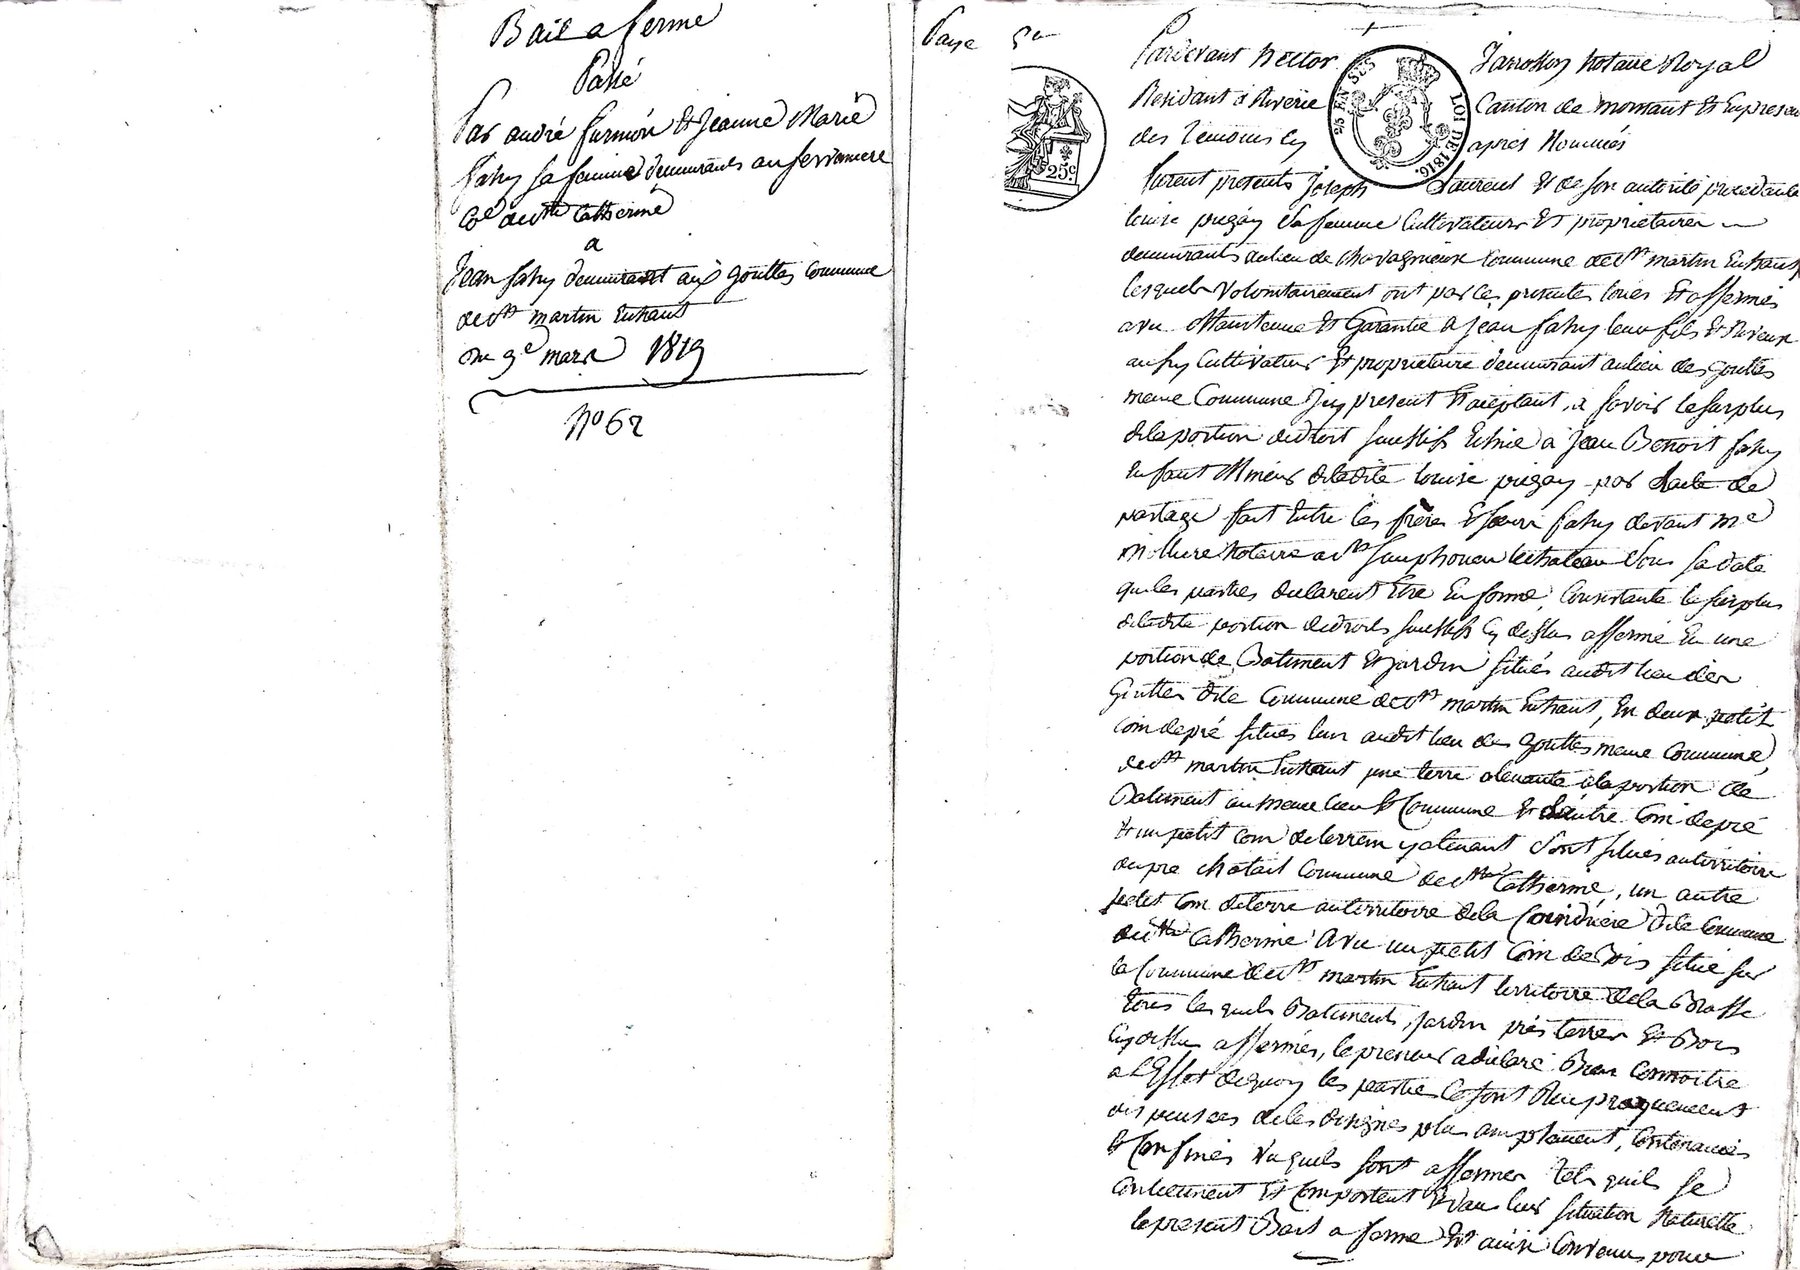 Bail a ferme
Passé
Par andré furnion et Jeanne Marie
fahy sa femme demeurants au
Co^e de S^te Catherine
a
Jean fahy demeurant aux gouttes Commune
de S^t martin Enhaut
Du 9^e mars 1819
N° 62
Paye 5^c
25^c
25^c EN SUS
LOI DE 1816.
Pardevant hector Notaire Royal
Residant a Riverie Canton de mornant Et En presence
des temoins Cy après Nommés
furent presents Joseph Laurent Et de son autorité procedante
louise piegay Sa femme Cultivateurs Et proprietaires
demeurants au lieu de Chavagnieux Commune de S^t martin Enhaut
lesquels Volontairement ont par Ces presentes loués Et affermés
avec Maintenue Et Garantie a Jean fahy leur fils Et
aussy Cultivateur Et proprietaire demeurant au lieu des gouttes
meme Commune Icy present Et aceptant, a savoir le surplus
de la portion de droit Echue a Jean Benoit fahy
Enfant Mineur de ladite louise piegay par de
partage fait Entre les frères Et Soeurs fahy devant M^e
notaire a S^t Simphorien le chateau Sous sa date
que les parties declarent Etre En forme, Consistante le surplus
de ladite portion de droits Cy dessus affermé En une
portion de Batiment Et jardin situés audit lieu des
Gouttes dite Commune de S^t martin Enhaut, En deux petits
coin de pré situés lun audit lieu des gouttes meme Commune
de S^t martin Enhaut une terre a la portion de
Batiment au meme lieu Et Commune Et Lautre Coin de pré
Et un petit coin de terrein y atenant Sont situés au territoire
du pre Commune de S^te Catherine, un autre
petit Coin de terre au territoire de la dite Commune
de S^te Catherine Avec un petit Coin de Bois situé sur
la Commune de S^t martin Enhaut territoire de la
tous lesquels Batiments, jardin prés terres Et Bois
Cy dessus affermés, le preneur a declaré Bien Connoitre
a L'Effet de quoy les parties Ce sont Reciproquement
dispensees de les designes plus amplement, Contenances
Et Confines Lesquels sont affermes tels quils se
Contiennent Et Comportent Et dans leur situation Naturelle
le present Bail a ferme Est ainsi Convenu pour